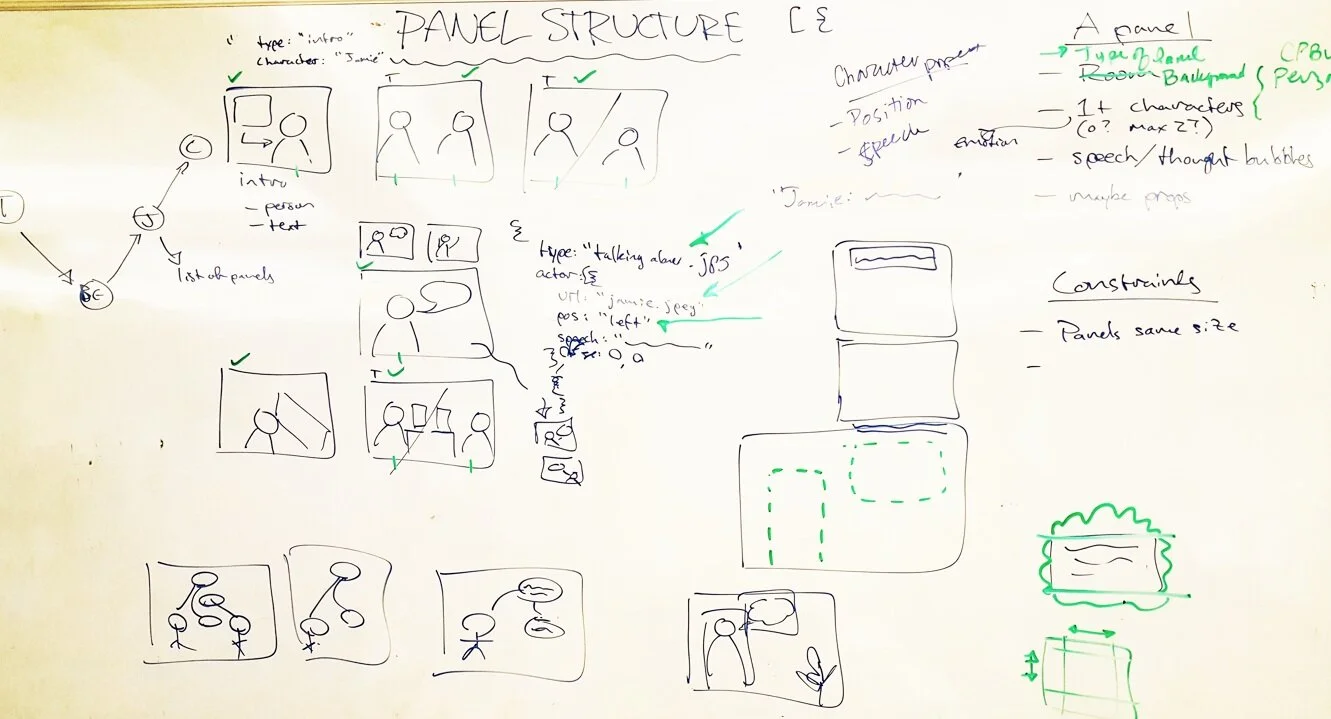 PANEL STRUCTURE [{
type: "intro"
character: "Jamie"
T
T
intro
- person
- text
C
J
list of panels
T
{
type: "talking alone.jpg"
actor: [{
url: "jamie.jpeg"
pos: "left"
speech: "
"
Character
- Position
- speech
emotion
"Jamie:
A panel
→ Type of panel
- Room Background
- 1+ characters
(0? max 2?)
- speech/thought bubbles
- maybe props
Constraints
- Panels same size
-